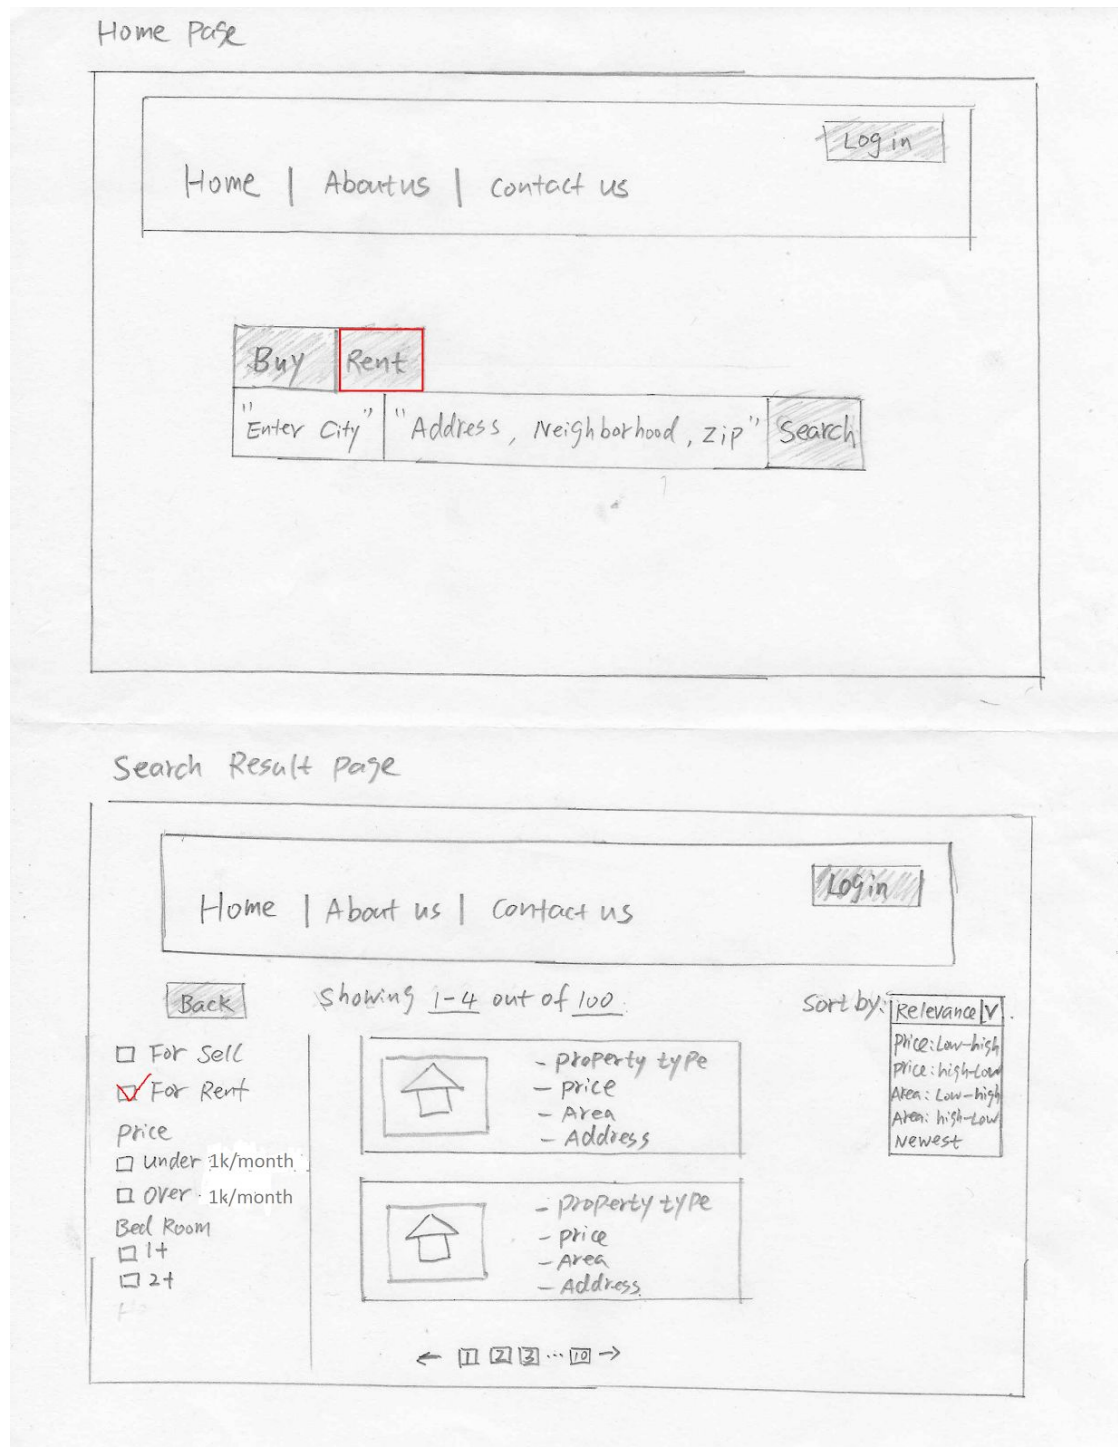 Home Page
Log in
Home | About us | Contact us
Buy Rent
"Enter City" "Address, Neighborhood, Zip" Search
Search Result page
Login
Home | About us | Contact us
Back Showing 1-4 out of 100 Sort by: Relevance V
Price: Low-high
Price: high-Low
Area: Low-high
Area: high-Low
Newest
For Sell
For Rent
Price
Under 1k/month
Over 1k/month
Bed Room
1+
2+
- property type
- price
- Area
- Address
- property type
- price
- Area
- Address
← 1 2 3 ... 10 →